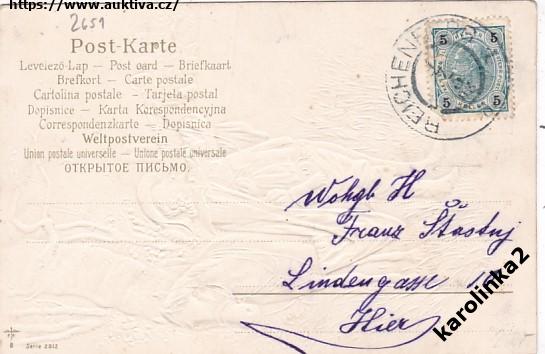 https://www.auktiva.cz/
2651
Post-Karte
Levelező-Lap — Post card — Briefkaart
Brefkort — Carte postale
Cartolina postale — Tarjeta postal
Dopisnice — Karta Korespondencyjna
Correspondenzkarte — Dopisnica
Weltpostverein
Union postale universelle — Unione postale universale
ОТКРЫТОЕ ПИСЬМО.
5 5
5 5
REICHENBERG
Wohgb H
Franz Šťastný
Lindengasse
Hier
karolinka2
8 Serie 2812